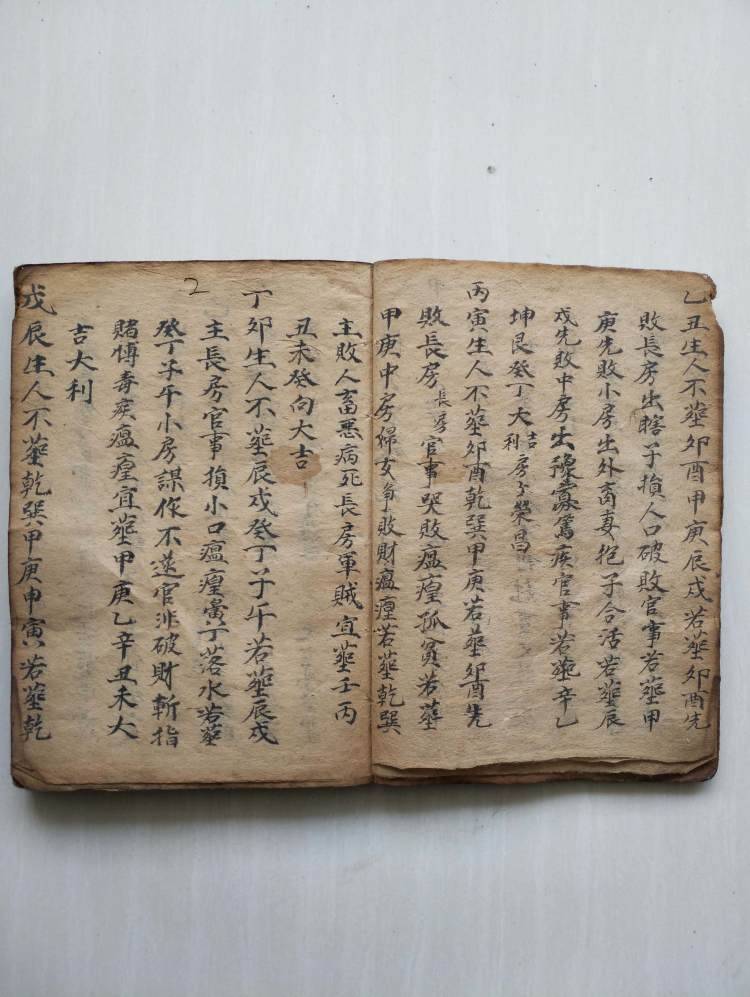 乙丑生人不塟卯酉甲庚辰戌若塟卯酉先
敗長房出瞎子損人口破敗官事若塟甲
庚先敗小房出外商妻抱子合活若塟辰
戌先敗中房出 篤疾官事若塟辛乙
坤艮癸丁大吉利房子榮昌
丙寅生人不塟卯酉乾巽甲庚若塟卯酉先
敗長房長房官事哭敗瘟瘟孤貧若塟
甲庚中房婦女爭敗財瘟瘟若塟乾巽
主敗人畜惡病死長房軍賊宜塟壬丙
丑未癸向大吉
2
丁卯生人不塟辰戌癸丁子午若塟辰戌
主長房官事損小口瘟瘟 丁落水若塟
癸丁子午小房謀作不遂官非破財斬指
賭博毒疾瘟瘟宜塟甲庚乙辛丑未大
吉大利
戊辰生人不塟乾巽甲庚申寅若塟乾